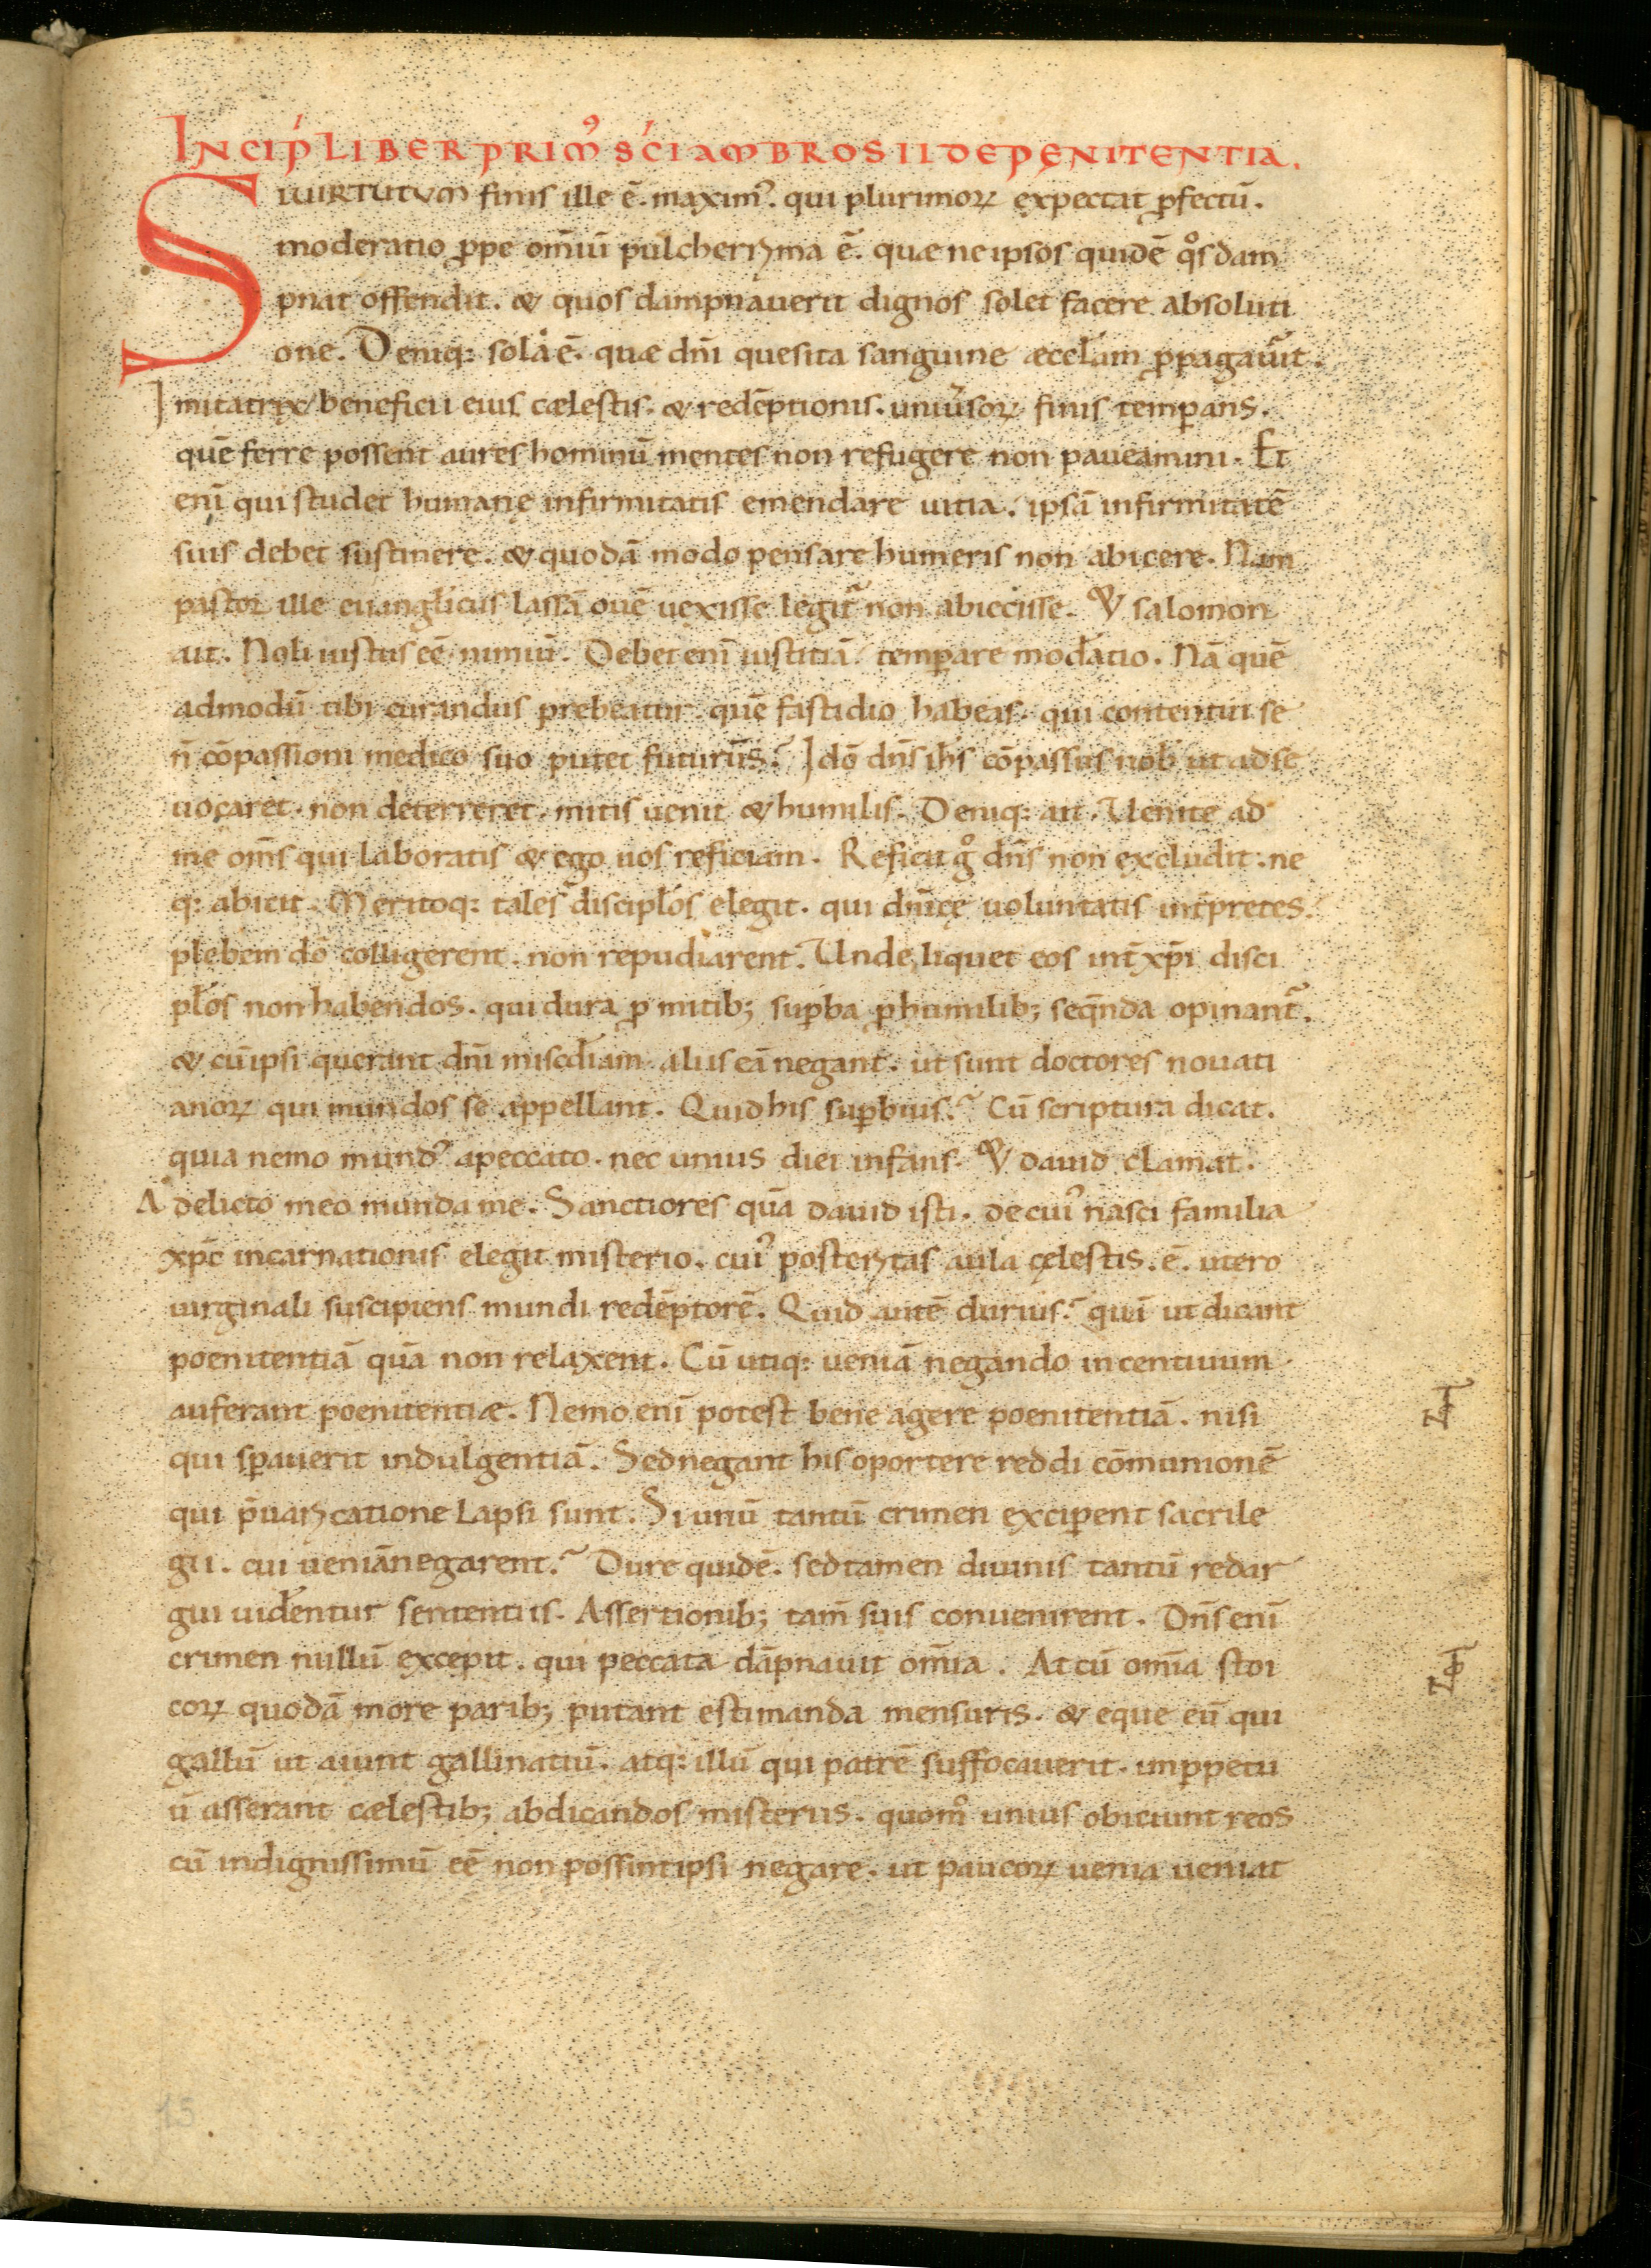 INCIṔ LIBER PRIM᾽ SĆI AMBROSII DE PENITENTIA.
SI UIRTUTVM finis ille ē. maxim᾽. qui plurimoꝝ expectat ꝓfectū.
moderatio ꝓpe om̄iū pulcherrima ē. quæ ne ipsos quidē qͦs dam
pnat offendit. & quos dampnauerit dignos solet facere absoluti
one. Deniq: sola ē. quæ dn̄i quesita sanguine æccl̄am ꝓpagauit.
Imitatrix beneficii eius cælestis. & redēptionis. uniu̾soꝝ finis temꝑans.
quē ferre possent aures hominū mentes non refugere non paueamini. Et
eni̅ qui studet humanę infirmitatis emendare uitia. ipsā infirmitatē
suis debet sustinere. & quodā modo pensare humeris non abicere. Nam
pastor ille euangl̄icus lassā ouē uexisse legit᷑ non abiecisse. & salomon
ait. Noli iustus eē nimiū. Debet eni̅ iustitiā temꝑare mod̄atio. Nā quē
admodū tibi curandus prebeatur quē fastidio habeas. qui contentui se
n̄ cōpassioni medico suo putet futurūs? Idō dn̄s ih̄s cōpassus nob̄ ut ad se
uocaret. non deterreret. mitis uenit & humilis. Deniq: ait. Uenite ad
me om̄s qui laboratis & ego uos reficiam. Reficit gͦ dn̄s non excludit. ne
q: abicit. Meritoq: tales discipl̄os elegit. qui dn̄icę uoluntatis int̄pretes.
plebem dō colligerent. non repudiarent. Unde liquet eos int̄ xp̄i disci
pl̄os non habendos. qui dura ꝓ mitib; suꝑba ꝓ humilib; seq̄nda opinant᷑.
& cū ipsi querant dn̄i misc̄diam aliis eā negant. ut sunt doctores nouati
anoꝝ qui mundos se appellant. Quid his suꝑbius? Cū scriptura dicat.
quia nemo mund᾽ a peccato. nec unius diei infans. & dauid clamat.
A delicto meo munda me. Sanctiores quā dauid isti. de cui᾽ nasci familia
xp̄c incarnationis elegit misterio. cui᾽ posteritas aula cęlestis. ē. utero
uirginali suscipiens mundi redēptorē. Quid autē durius? quā ut dicant
poenitentiā quā non relaxent. Cū utiq: ueniā negando incentiuum
auferant poenitentiæ. Nemo eni̅ potest bene agere poenitentiā. nisi
qui sꝑauerit indulgentiā. Sed negant his oportere reddi cōmunionē
qui p̄uaricatione lapsi sunt. Si unū tantū crimen exciꝑent sacrile
gii. cui ueniā negarent? Dure quidē. sed tamen diuinis tantū redar
gui uid̄entur sententiis. Assertionib; tam̄ suis conuenirent. Dn̄s eni̅
crimen nullū excepit. qui peccata dāpnauit om̄ia. At cū om̄ia stoi
coꝝ quodā more parib; putant estimanda mensuris. & eque eū qui
gallū ut aiunt gallinatiū. atq: illū qui patrē suffocauerit. in ꝑpetu
ū asserant cælestib; abdicandos misteriis. quomͦ unius obiciunt reos
cū indignissimū eē non possint ipsi negare. ut paucoꝝ uenia ueniat
15